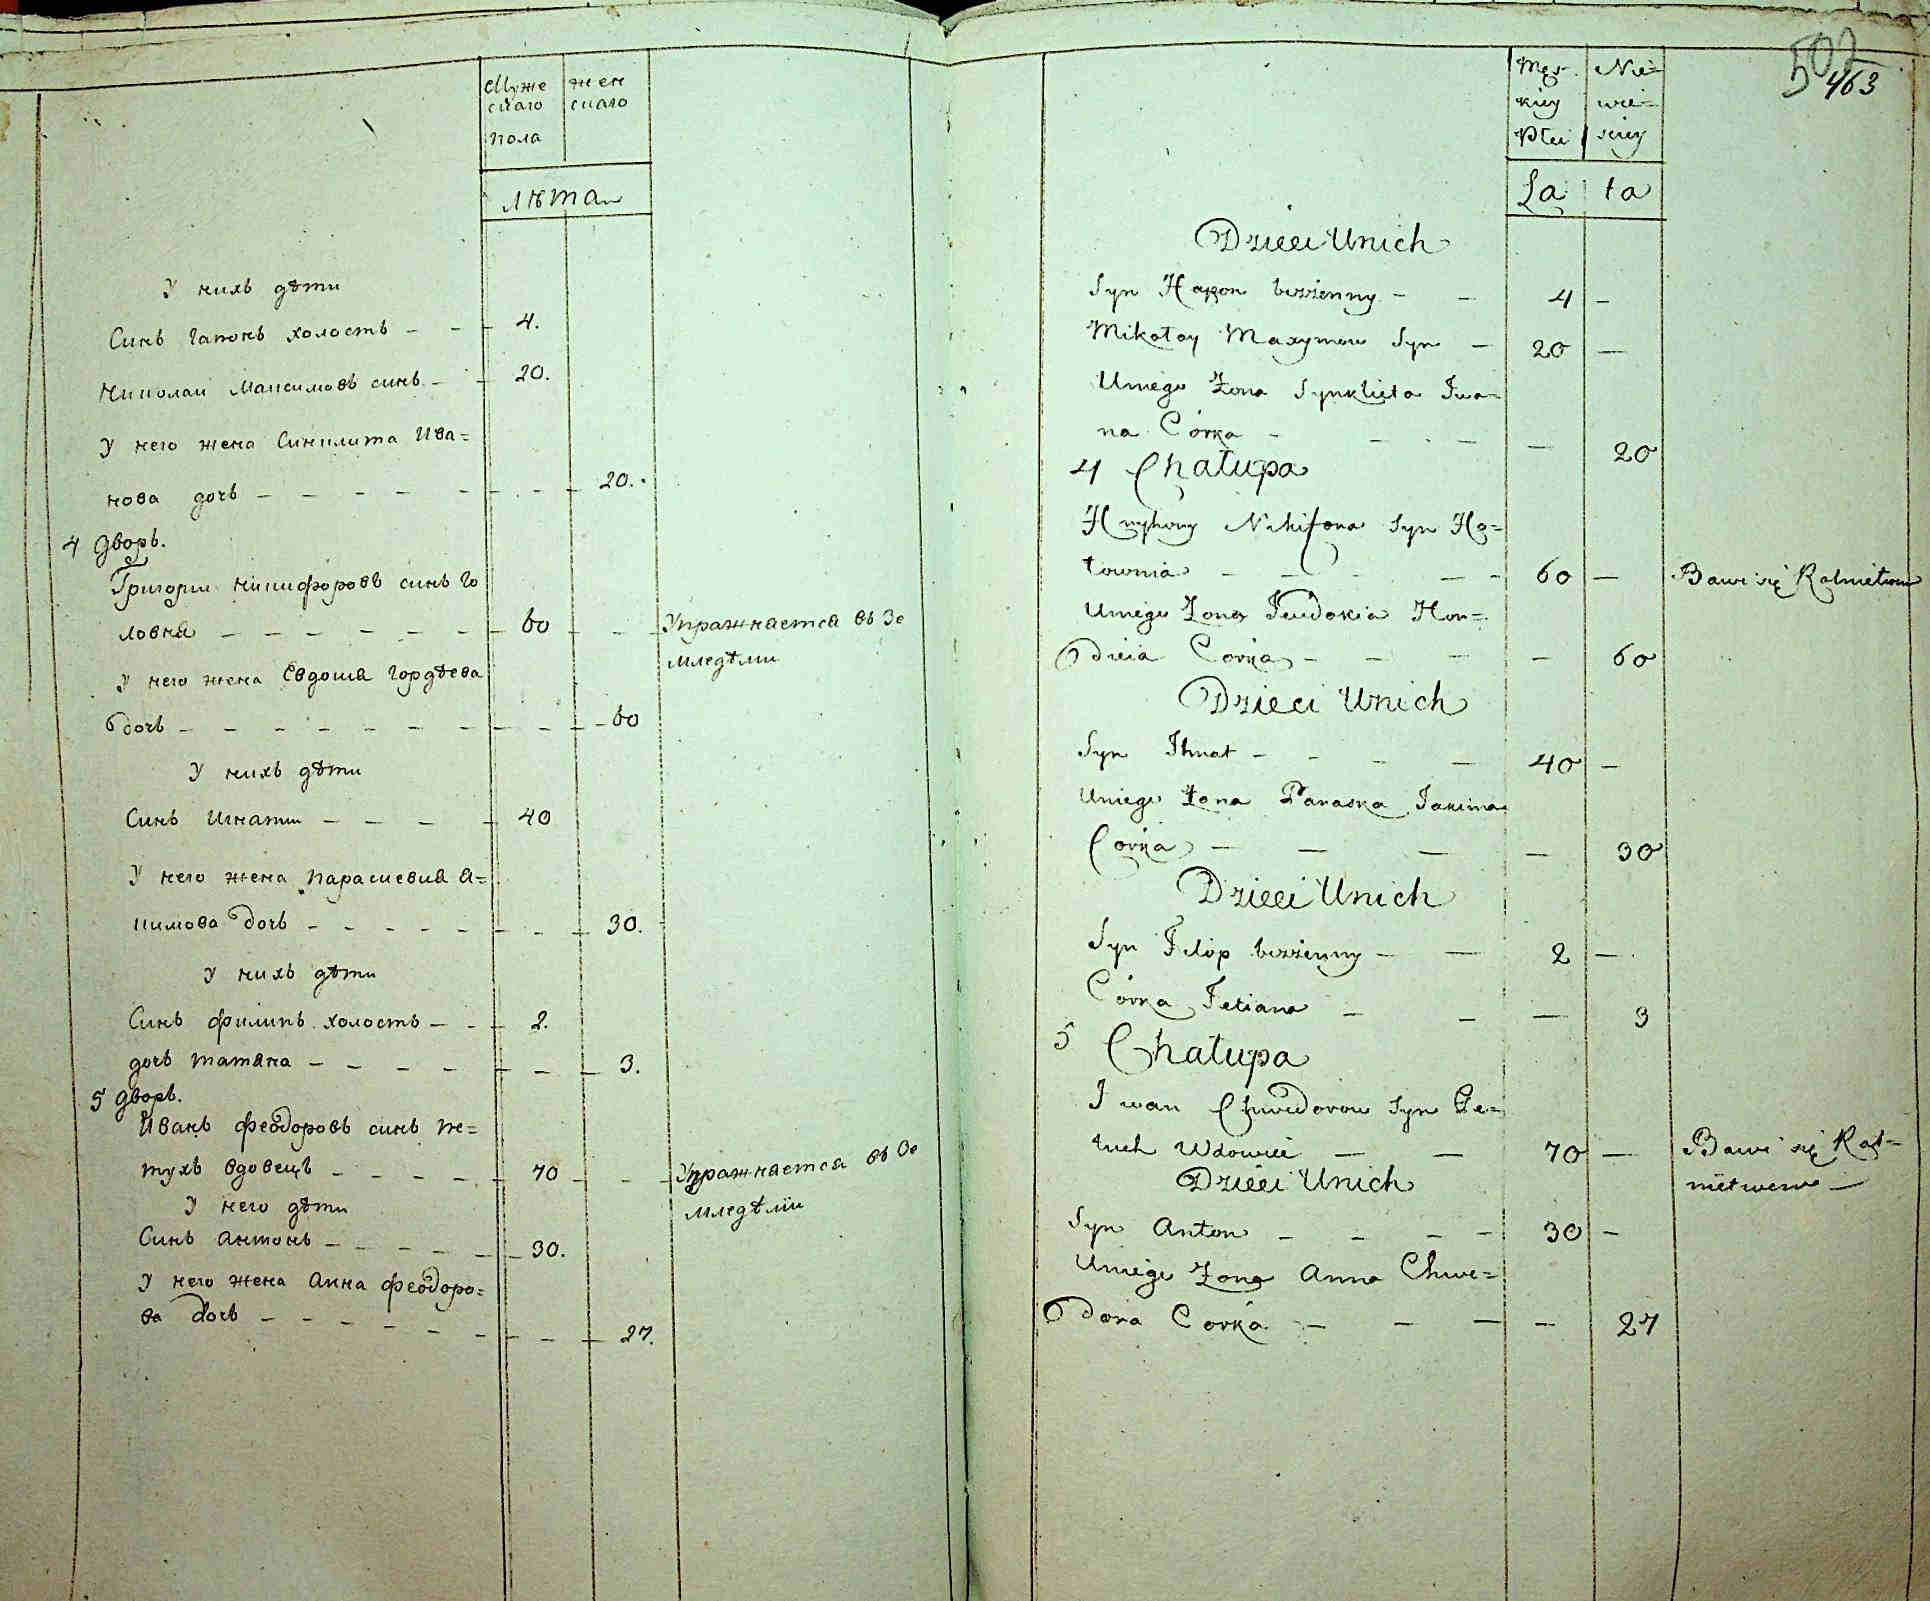 Муже жен
скаго скаго
пола
лѣта
У нихъ дѣти
Синъ Гапонъ холостъ 4.
Николай Максимовъ синъ 20.
У него жена Синклита Ива=
нова дочь 20.
4 дворъ.
Григори Никифоровъ синъ Го
ловня 60 Упражняется въ Зе
мледѣлии
У него жена Евдокия Гордѣева
дочь 60
У нихъ дѣти
Синъ Игнати 40
У него жена Параскевия А=
кимова дочь 30.
У нихъ дѣти
Синъ Филипъ холостъ 2.
дочь Татяна 3.
5 дворъ.
Иванъ Феодоровъ синъ Пе=
тухъ вдовецъ 70 Упражняется въ Зе
мледѣлїи
У него дѣти
Синъ Антонъ 30.
У него жена Анна Феодоро=
ва дочь 27.
502
463
Męz- Nie=
kiey wie=
Płci skiey
La ta
Dzieci Unich
Syn Hapon bezżenny 4
Mikołay Maxymow Syn 20
Uniego Żona Synklieta Iwa=
na Córka 20
4 Chałupa
Hryhory Nikifora Syn Ho=
łownia 60 Bawi się Rolnictwem
Uniego Żona Jeudokia Hor=
dieia Corka 60
Dzieci Unich
Syn Ihnat 40
Uniego Żona Paraska Jakima
Corka 30
Dzieci Unich
Syn Filip bezżenny 2
Córka Tetiana 3
5 Chałupa
Iwan Chwedorow Syn Pe=
tuch Wdowiec 70 Bawi się Rol=
nictwem
Dzieci Unich
Syn Anton 30
Uniego Żona Anna Chwe=
dora Corka 27